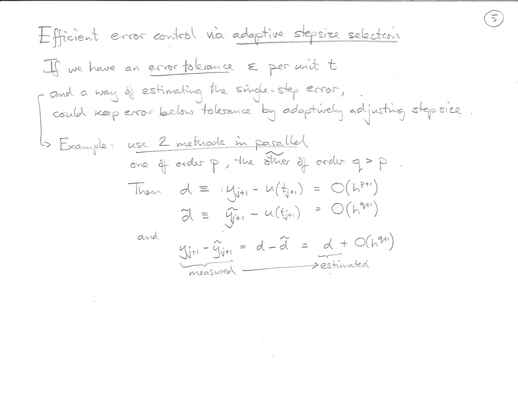 5
Efficient error control via adaptive stepsize selection
If we have an error tolerance ε per unit t
and a way of estimating the single-step error,
could keep error below tolerance by adaptively adjusting stepsize.
Example: use 2 methods in parallel
one of order p, the other of order q > p.
Then d ≡ y_{j+1} - u(t_{j+1}) = O(h^{p+1})
d̃ ≡ ỹ_{j+1} - u(t_{j+1}) = O(h^{q+1})
and
y_{j+1} - ỹ_{j+1} = d - d̃ = d + O(h^{q+1})
measured → estimated